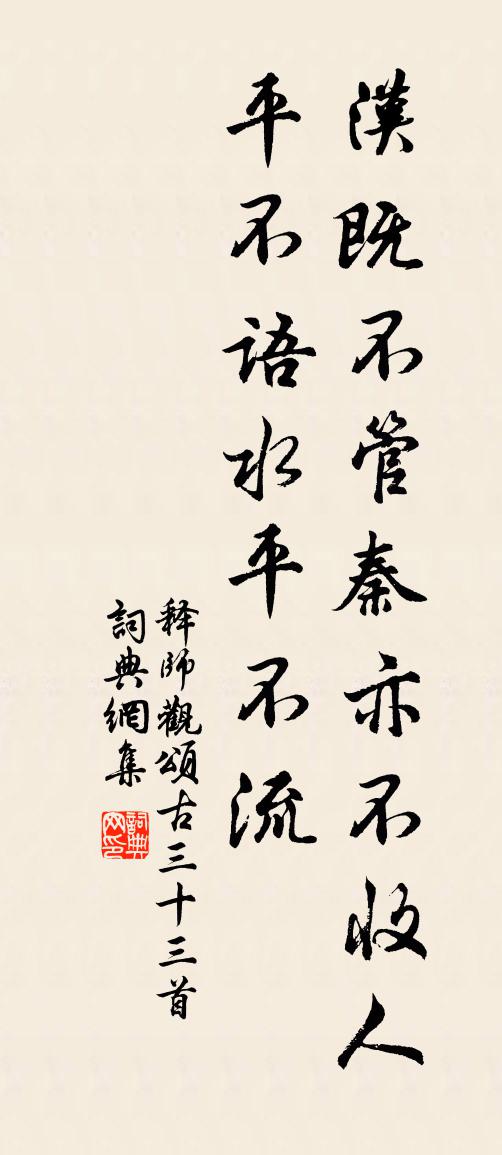 漢既不管秦亦不收人
平不語水平不流
释師觀頌古三十三首
詞典網集
詞典
网印